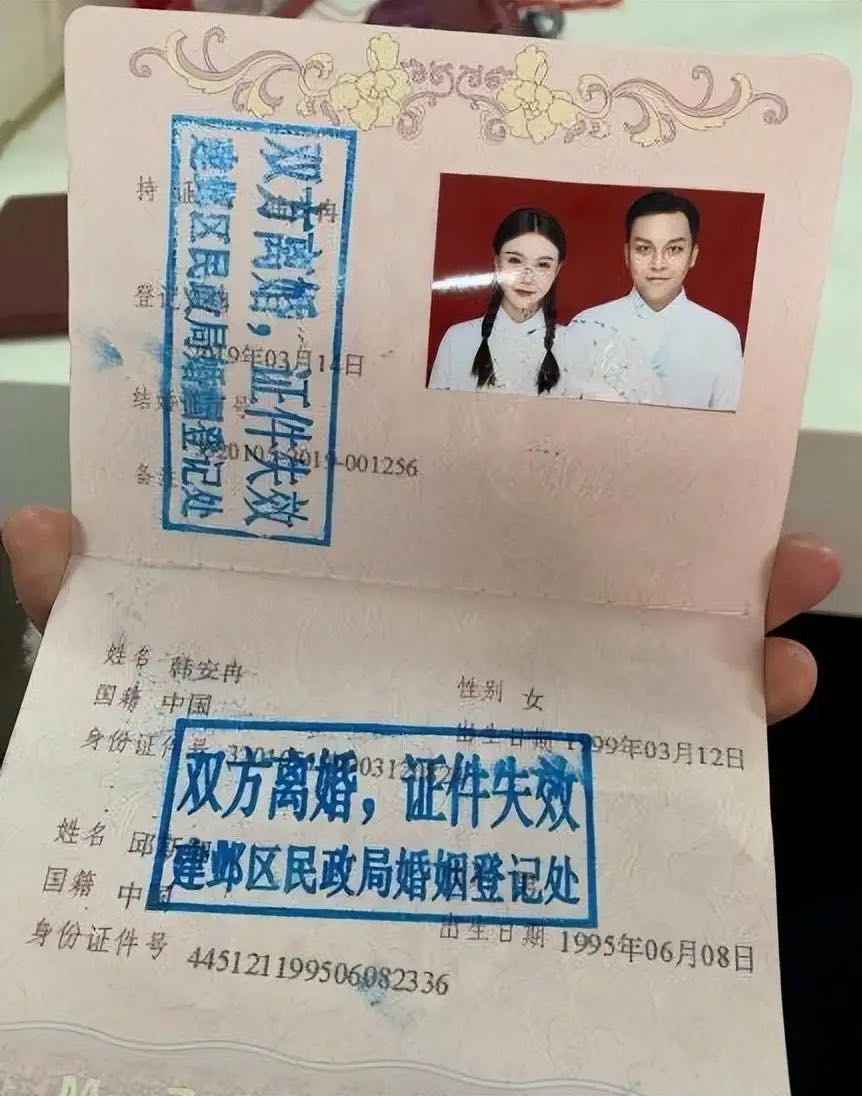 双方离婚，证件失效
建邺区民政局婚姻登记处
持证 冉
登记
19年03月14日
结婚 号
2019-001256
备
姓名 韩安冉 性别 女
国籍 中国 出生日期 1999年03月12日
身份证件号
双方离婚，证件失效
建邺区民政局婚姻登记处
姓名 邱
国籍 中国 出生日期 1995年06月08日
身份证件号 445121199506082336